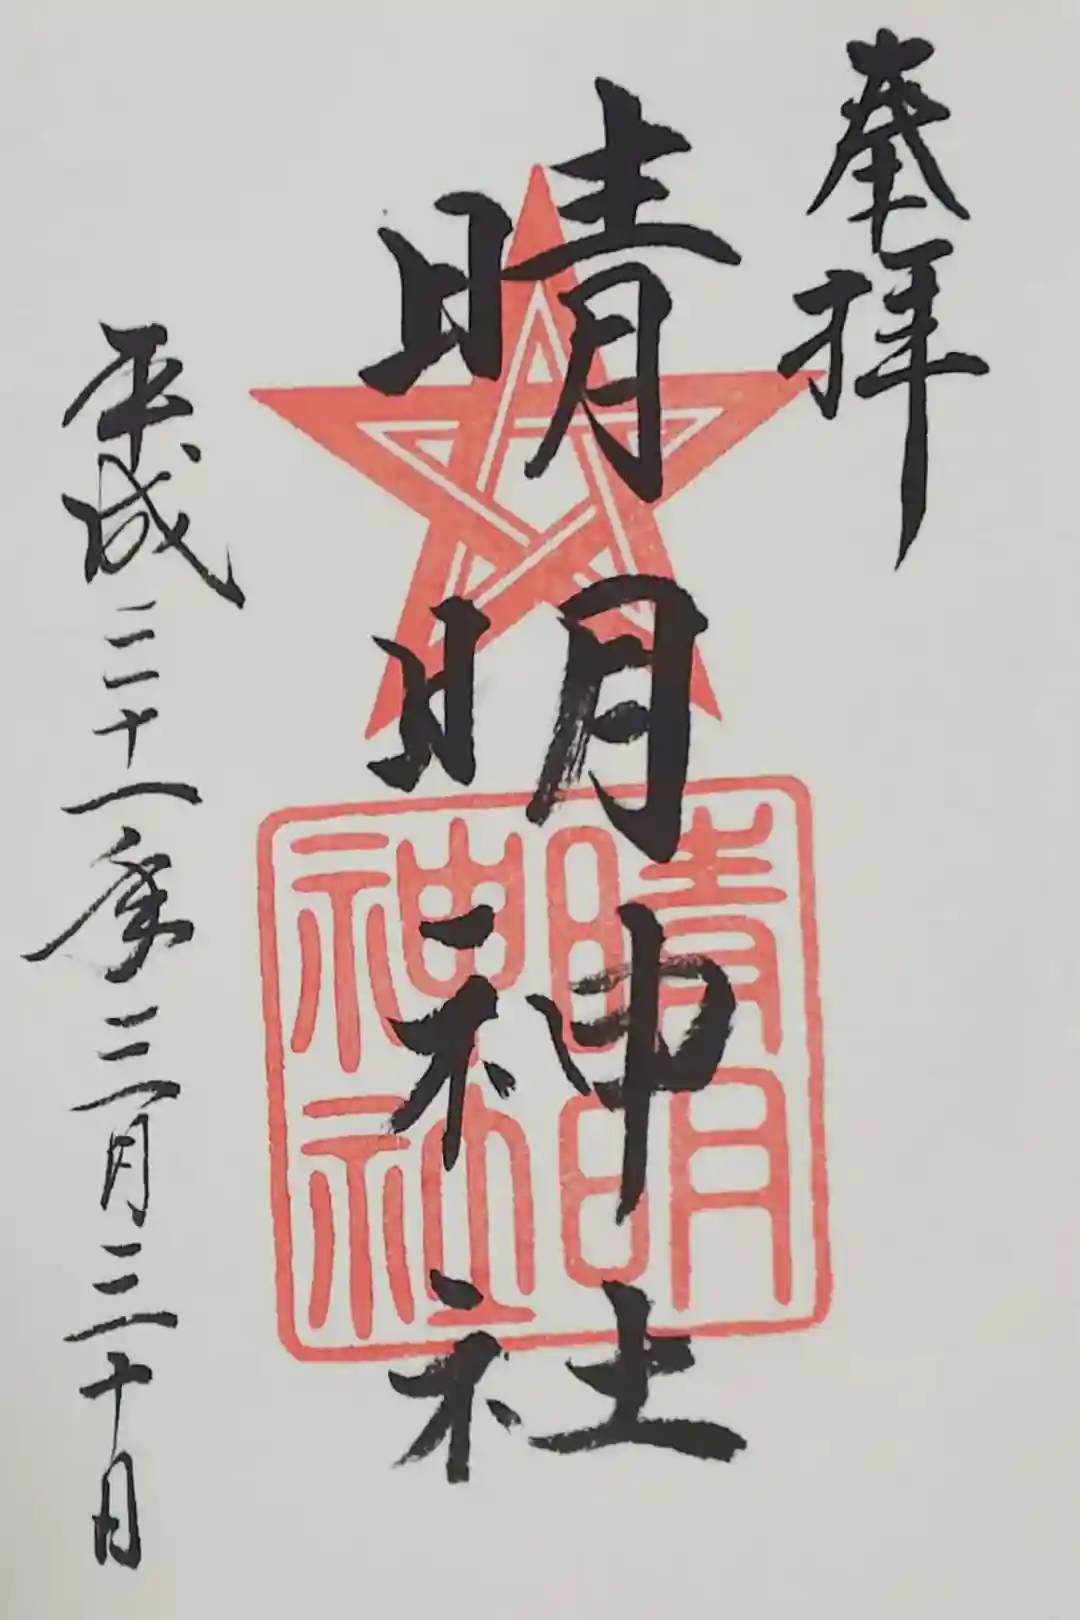 奉拝
晴明神社
平成三十一年三月三十日
晴明
神社